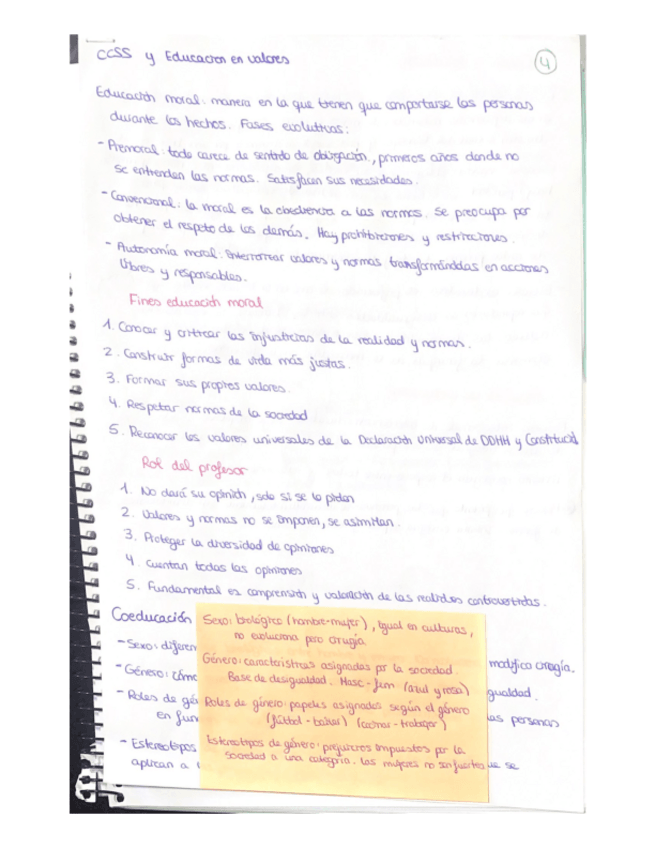 CCSS y Educación en valores
4
Educación moral: manera en la que tienen que comportarse las personas
durante los hechos. Fases evolutivas:
- Premoral: todo carece de sentido de obligación, primeros años donde no
se entienden las normas. Satisfacen sus necesidades.
- Convencional: la moral es la obediencia a las normas. Se preocupa por
obtener el respeto de los demás. Hay prohibiciones y restricciones.
- Autonomía moral: Interiorizar valores y normas transformándolas en acciones
libres y responsables.
Fines educación moral
1. Conocer y criticar las injusticias de la realidad y normas.
2. Construir formas de vida más justas.
3. Formar sus propios valores.
4. Respetar normas de la sociedad
5. Reconocer los valores universales de la Declaración Universal de DDHH y Constitución
Rol del profesor
1. No dará su opinión, solo si se lo piden
2. Valores y normas no se imponen, se asimilan.
3. Proteger la diversidad de opiniones
4. Cuentan todas las opiniones
5. Fundamental es comprensión y valoración de las realidades controvertidas.
Coeducación
- Sexo: diferen
modifica cirugía.
- Género: cómo
gualdad.
- Roles de gé
las personas
en fun
- Estereotipos
ue se
aplican a l
Sexo: biológico (hombre-mujer), igual en culturas,
no evoluciona pero cirugía
Género: características asignadas por la sociedad.
Base de desigualdad. Masc-fem (azul y rosa)
Roles de género: papeles asignados según el género
(fútbol - bailar) (cocinar - trabajar)
Estereotipos de género: prejuicios impuestos por la
sociedad a una categoría. Las mujeres no son fuertes